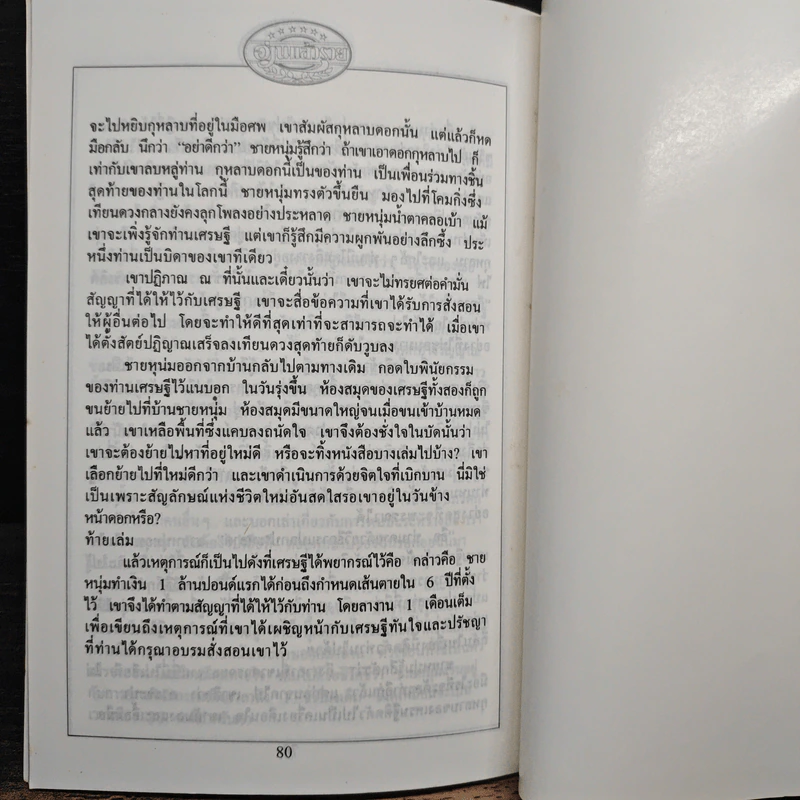 จะไปหยิบกุหลาบที่อยู่ในมือศพ เขาสัมผัสกุหลาบดอกนั้น แต่แล้วก็หด
มือกลับ นึกว่า “อย่าดีกว่า” ชายหนุ่มรู้สึกว่า ถ้าเขาเอาดอกกุหลาบไป ก็
เท่ากับเขาลบหลู่ท่าน กุหลาบดอกนี้เป็นของท่าน เป็นเพื่อนร่วมทางชิ้น
สุดท้ายของท่านในโลกนี้ ชายหนุ่มทรงตัวขึ้นยืน มองไปที่โคมกิ่งซึ่ง
เทียนดวงกลางยังคงลุกโพลงอย่างประหลาด ชายหนุ่มน้ำตาคลอเบ้า แม้
เขาจะเพิ่งรู้จักท่านเศรษฐี แต่เขาก็รู้สึกมีความผูกพันอย่างลึกซึ้ง ประ
หนึ่งท่านเป็นบิดาของเขาทีเดียว
เขาปฏิภาณ ณ ที่นั้นและเดี๋ยวนั้นว่า เขาจะไม่ทรยศต่อคำมั่น
สัญญาที่ได้ให้ไว้กับเศรษฐี เขาจะสื่อข้อความที่เขาได้รับการสั่งสอน
ให้ผู้อื่นต่อไป โดยจะทำให้ดีที่สุดเท่าที่จะสามารถจะทำได้ เมื่อเขา
ได้ตั้งสัตย์ปฏิญาณเสร็จลงเทียนดวงสุดท้ายก็ดับวูบลง
ชายหุน่มออกจากบ้านกลับไปตามทางเดิม กอดใบพินัยกรรม
ของท่านเศรษฐีไว้แนบอก ในวันรุ่งขึ้น ห้องสมุดของเศรษฐีทั้งสองก็ถูก
ขนย้ายไปที่บ้านชายหนุ่ม ห้องสมุดมีขนาดใหญ่จนเมื่อขนเข้าบ้านหมด
แล้ว เขาเหลือพื้นที่ซึ่งแคบลงถนัดใจ เขาจึงต้องชั่งใจในบัดนั้นว่า
เขาจะต้องย้ายไปหาที่อยู่ใหม่ดี หรือจะทิ้งหนังสือบางเล่มไปบ้าง? เขา
เลือกย้ายไปที่ใหม่ดีกว่า และเขาดำเนินการด้วยจิตใจที่เบิกบาน นี่มิใช่
เป็นเพราะสัญลักษณ์แห่งชีวิตใหม่อันสดใสรอเขาอยู่ในวันข้าง
หน้าดอกหรือ?
ท้ายเล่ม
แล้วเหตุการณ์ก็เป็นไปดังที่เศรษฐีได้พยากรณ์ไว้คือ กล่าวคือ ชาย
หนุ่มทำเงิน 1 ล้านปอนด์แรกได้ก่อนถึงกำหนดเส้นตายใน 6 ปีที่ตั้ง
ไว้ เขาจึงได้ทำตามสัญญาที่ได้ให้ไว้กับท่าน โดยลางาน 1 เดือนเต็ม
เพื่อเขียนถึงเหตุการณ์ที่เขาได้เผชิญหน้ากับเศรษฐีทันใจและปรัชญา
ที่ท่านได้กรุณาอบรมสั่งสอนเขาไว้
80